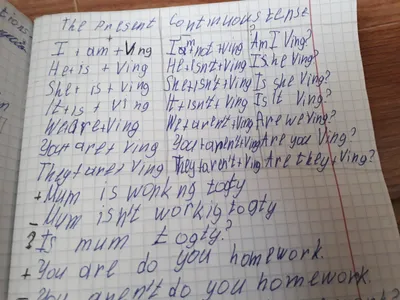 The Present Continuous tense
I + am + Ving I amn't + Ving Am I Ving?
He + is + Ving He + isn't + Ving Is he Ving?
She + is + Ving She + isn't + Ving Is she Ving?
It + is + Ving It + isn't + Ving Is It Ving?
We are + Ving We + aren't + Ving Are we Ving?
You + are + Ving You + aren't + Ving Are you Ving?
They + are + Ving They + aren't + Ving Are they + Ving?
+ Mum is workng togty
- Mum isn't workig togty
? Is mum togty?
+ You are do you homework.
- You aren't do you homework.